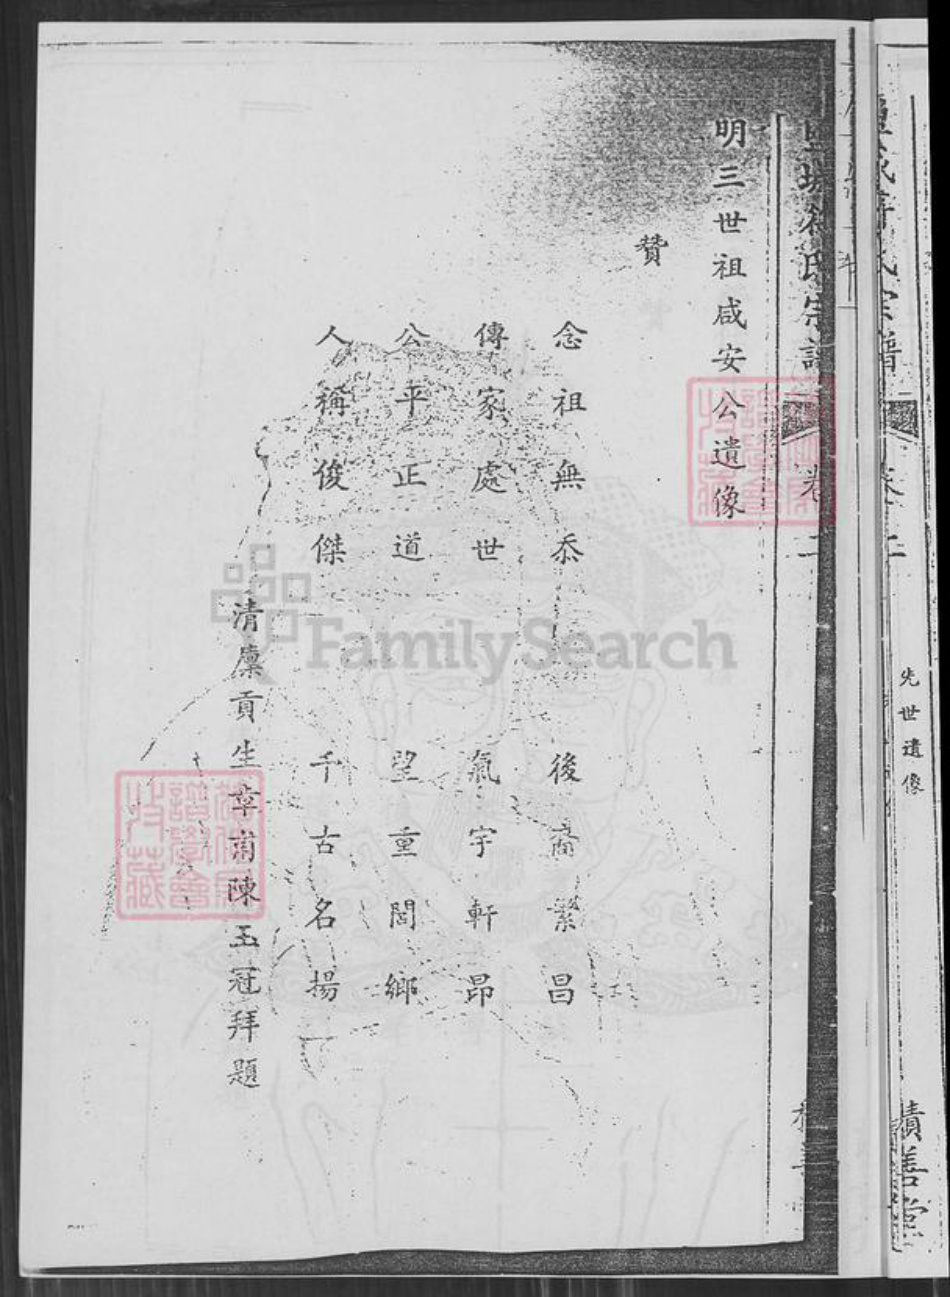 先世遺像
積善堂
氏宗譜
卷二
明三世祖咸安公遺像
贊
念祖無忝 後裔繁昌
傳家處世 氣宇軒昂
公平正道 望重閭鄉
人稱俊傑 千古名揚
清廩貢生章甫陳玉冠拜題
FamilySearch